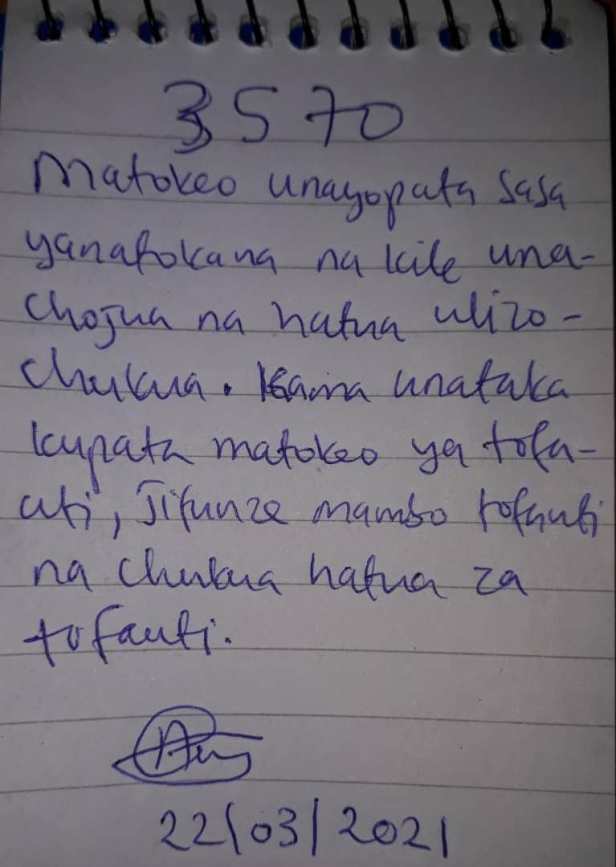 3570
Matokeo unayopata sasa
yanatokana na kile una-
chojua na hatua ulizo-
chukua. Kama unataka
kupata matokeo ya tofa-
uti, Jifunze mambo tofauti
na chukua hatua za
tofauti.
22/03/2021